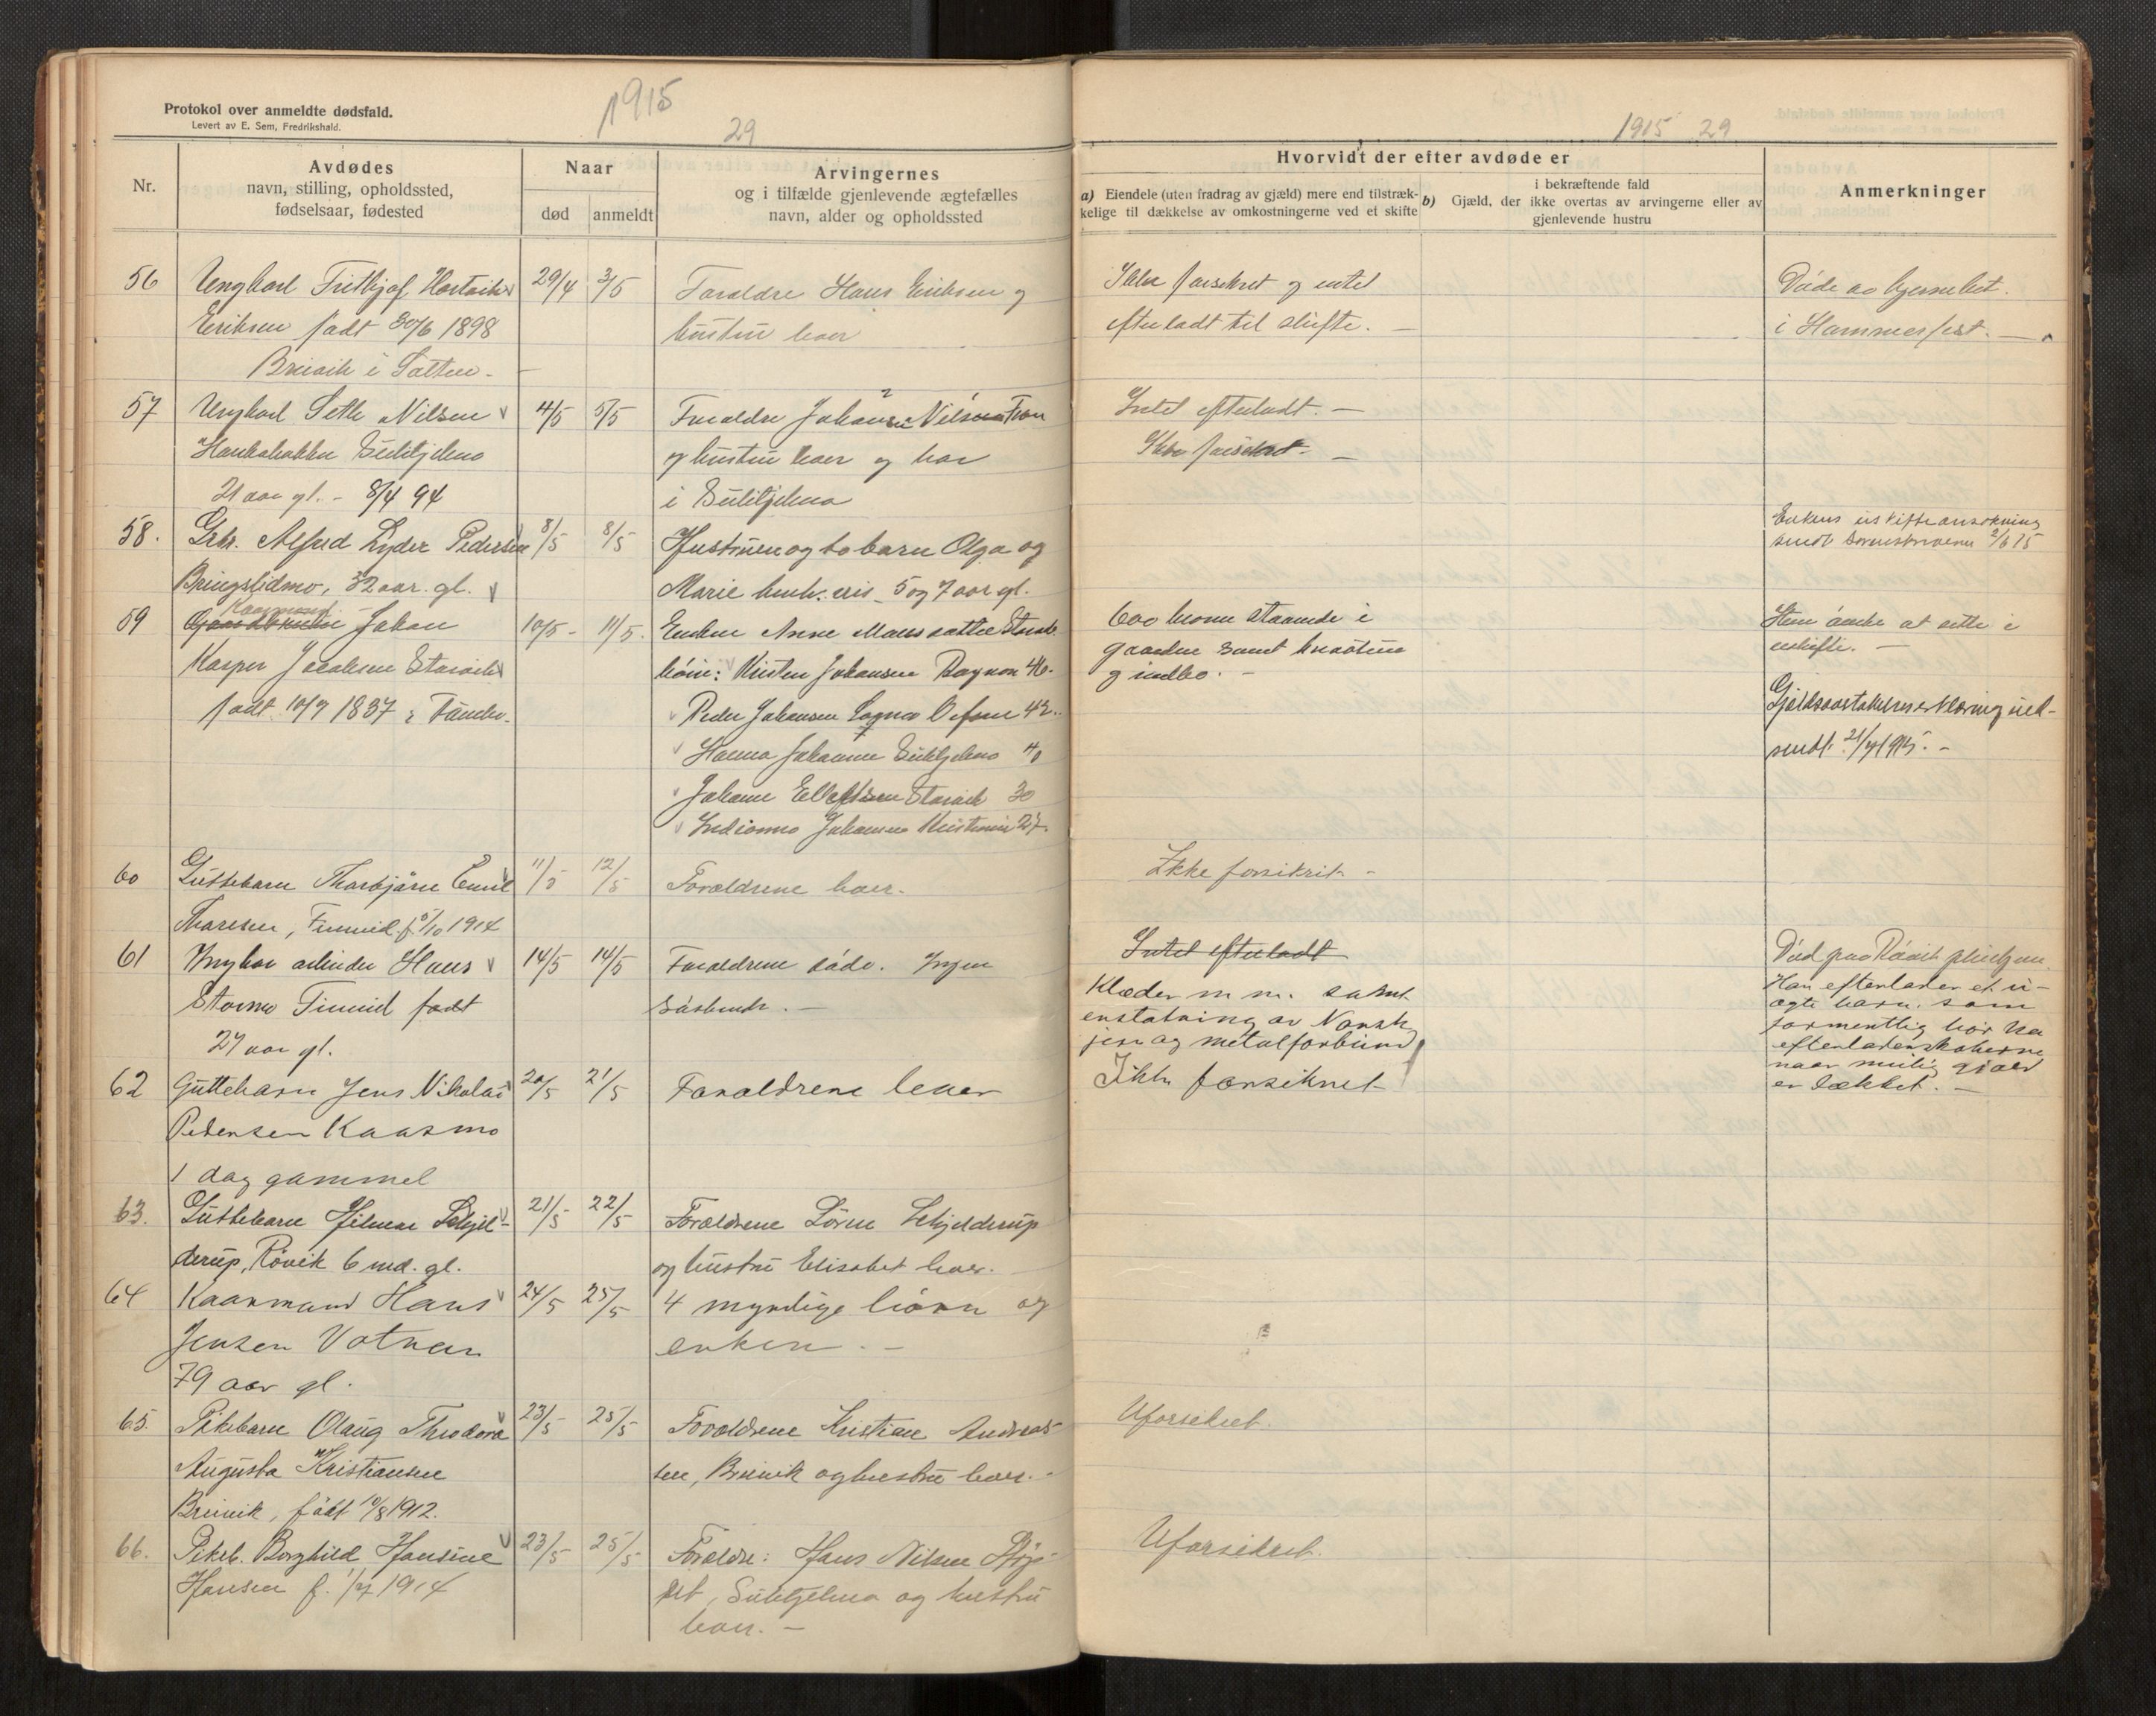 Protokol over anmeldte dødsfald.
Levert av E. Sem, Fredrikshald.
1915
29
Nr.
Avdødes
navn, stilling, opholdssted,
fødselsaar, fødested
Naar
død
anmeldt
Arvingernes
og i tilfælde gjenlevende ægtefælles
navn, alder og opholdssted
56
Ungkarl Frithjof Hartvik
Eriksen født 30/6 1898
Breivik i Salten -
29/4
3/5
Forældre Hans Eriksen og
hustru lever
57
Ungkarl Seth Nilsen
Hankabakken Sulitjelma
21 aar gl. - 8/4 94
4/5
5/5
Forældre Johan Nilsen
og hustru lever og bor
i Sulitjelma
58.
Grbr. Alfred Lyder Pedersen
Bringslidmo, 32 aar. gl.
8/5
8/5
Hustruen og to barn Olga og
Marie henh. vis 5 og 7 aar gl.
59
Kaarmand
Gaardbruker Johan
Kasper Jacobsen Storvik
født 10/7 1837 i
10/5 -
11/5.
Enken Anne
børn: Kristen Johansen 46.
Peder Johansen 42.
Hanna Johanne Sulitjelma 40
Johanne Ellefsen Storvik 30
Indianna Johansen 27.
60
Guttebarn Thorbjørn Emil
Thoresen, Finneid f. 5/10 1914
11/5
12/5
Forældrene lever.
61
Yngkar arbeider Hans
Stormo Finneid født
27 aar gl.
14/5
14/5
Forældrene døde. Ingen
søskende. -
62
Guttebarn Jens Nikolai
Pedersen Kaasmo
1 dag gammel
20/5
21/5
Forældrene lever
63.
Guttebarn Hilmar Schjel-
derup, Røvik 6 md. gl.
21/5
22/5
Forældrene Sören Schjelderup
og hustru Elisabet lever.
64
Kaarmand Hans
Jensen Votnan
79 aar gl.
24/5
25/5
4 myndige börn og
enken. -
65.
Pikebarn Olaug Theodora
Augusta Kristiansen
Breivik, født 10/8 1912.
23/5
25/5
Forældrene Kristian Andreas-
sen, Breivik og hustru lever. -
66.
Pikeb. Borghild Hansine
Hansen f. 1/7 1914
23/5
25/5
Forældre: Hans Nilsen
Sulitjelma og hustru
lever. -
1915 29
Hvorvidt der efter avdøde er
a) Eiendele (uten fradrag av gjæld) mere end tilstræk-
kelige til dækkelse av omkostningerne ved et skifte
b)
i bekræftende fald
Gjæld, der ikke overtas av arvingerne eller av
gjenlevende hustru
Anmerkninger
Ikke forsikret og intet
efterladt til skifte. -
Døde av hjernebet.
i Hammerfest. -
Intet efterladt. -
Ikke forsikret. -
Enkens uskifteansøkning
sendt Sorenskriveren 2/6 15
600 kroner staaende i
gaarden samt kreaturer
og indbo. -
Hun ønsker at sitte i
uskifte. -
Gjeldsovertakelseserklæring ind-
sendt 21/7 1915. -
Ikke forsikrit. -
Intet efterladt
Klæder m m. samt
erstatning av Norsk
jern og metalforbund
Død paa Røvik pleiehjem.
Han efterlader et u-
ægte barn, som
formentlig bør ha
efterladenskaberne
naar mulig gjæld
er dækket. -
Ikke forsikret
Uforsikret.
Uforsikret.